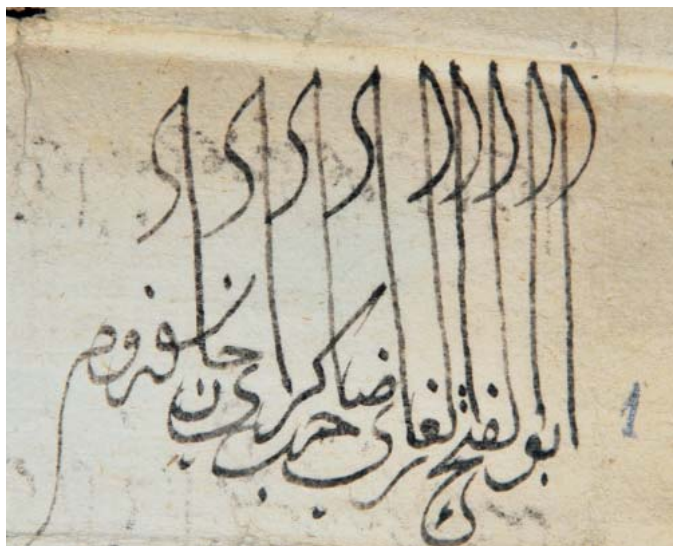 ابو الفتح الغازى صاحب كراى خان سوزوم